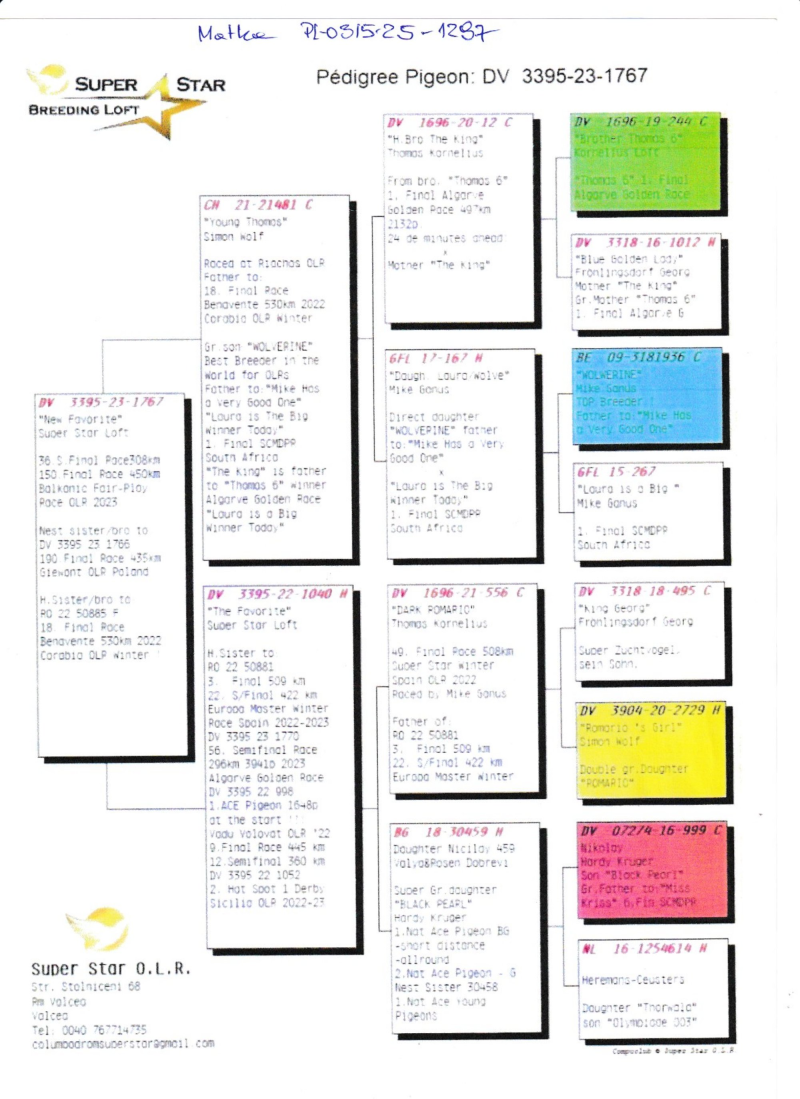 Matka PL-0315-25-1297
SUPER STAR
BREEDING LOFT
Pédigree Pigeon: DV 3395-23-1767
DV 3395-23-1767
"New Favorite"
Super Star Loft
36 S.Final Race308km
150 Final Race 450km
Balkanic Fair-Play
Race OLR 2023
Nest sister/bro to
DV 3395 23 1766
190 Final Race 435km
Giewont OLR Poland
H.Sister/bro to
RO 22 50885 F
18. Final Race
Benavente 530km 2022
Corabia OLR Winter
CH 21-21481 C
"Young Thomas"
Simon Wolf
Raced at Riachos OLR
Father to:
18. Final Race
Benavente 530km 2022
Corabia OLR Winter
Gr.son "WOLVERINE"
Best Breeder in the
World for OLRs
Father to:"Mike Has
a Very Good One"
"Laura is The Big
Winner Today"
1. Final SCMDPR
South Africa
"The King" is father
to "Thomas 6" winner
Algarve Golden Race
"Laura is a Big
Winner Today"
DV 3395-22-1040 H
"The Favorite"
Super Star Loft
H.Sister to
RO 22 50881
3. Final 509 km
22. S/Final 422 km
Europa Master Winter
Race Spain 2022-2023
DV 3395 23 1770
56. Semifinal Race
296km 3941p 2023
Algarve Golden Race
DV 3395 22 998
1.ACE Pigeon 1648p
at the start !!!
Vadu Volovat OLR '22
9.Final Race 445 km
12.Semifinal 360 km
DV 3395 22 1052
2. Hot Spot 1 Derby
Sicilia OLR 2022-23
DV 1696-20-12 C
"H.Bro The King"
Thomas Kornelius
From bro. "Thomas 6"
1. Final Algarve
Golden Race 497km
2132p
24 de minutes ahead
x
Mother "The King"
GFL 17-167 H
"Daugh. Laura/Wolve"
Mike Ganus
Direct daughter
"WOLVERINE" father
to:"Mike Has a Very
Good One"
x
"Laura is The Big
Winner Today"
1. Final SCMDPR
South Africa
DV 1696-21-556 C
"DARK ROMARIO"
Thomas Kornelius
49. Final Race 508km
Super Star Winter
Spain OLR 2022
Raced by Mike Ganus
Father of:
RO 22 50881
3. Final 509 km
22. S/Final 422 km
Europa Master Winter
BG 18-30459 H
Daughter Nicilay 459
Valya&Rosen Dobrevi
Super Gr.daughter
"BLACK PEARL"
Hardy Kruger
1.Nat Ace Pigeon BG
-short distance
-allround
2.Nat Ace Pigeon - G
Nest Sister 30458
1.Nat Ace Young
Pigeons
DV 1696-19-244 C
"Brother Thomas 6"
Kornelius Loft
"Thomas 6" 1. Final
Algarve Golden Race
DV 3318-16-1012 H
"Blue Golden Lady"
Fronlingsdorf Georg
Mother "The King"
Gr.Mother "Thomas 6"
1. Final Algarve G
BE 09-3181936 C
"WOLWERINE"
Mike Ganus
TOP Breeder !
Father to:"Mike Has
a Very Good One"
GFL 15-267
"Laura is a Big "
Mike Ganus
1. Final SCMDPR
South Africa
DV 3318-18-495 C
"King Georg"
Fronlingsdorf Georg
Super Zuchtvogel,
sein Sohn.
DV 3904-20-2729 H
"Romario 's Girl"
Simon Wolf
Double gr.Daughter
"ROMARIO"
DV 07274-16-999 C
Nikolay
Hardy Kruger
Son "Black Pearl"
Gr.Father to:"Miss
Kriss" 6.Fin SCMDPR
NL 16-1254614 H
Heremans-Ceusters
Daughter "Thorwald"
son "Olympiade 003"
Super Star O.L.R.
Str. Stolniceni 68
Rm Valcea
Valcea
Tel: 0040 767714735
columbodromsuperstar@gmail.com
Compuclub © Super Star O.L.R